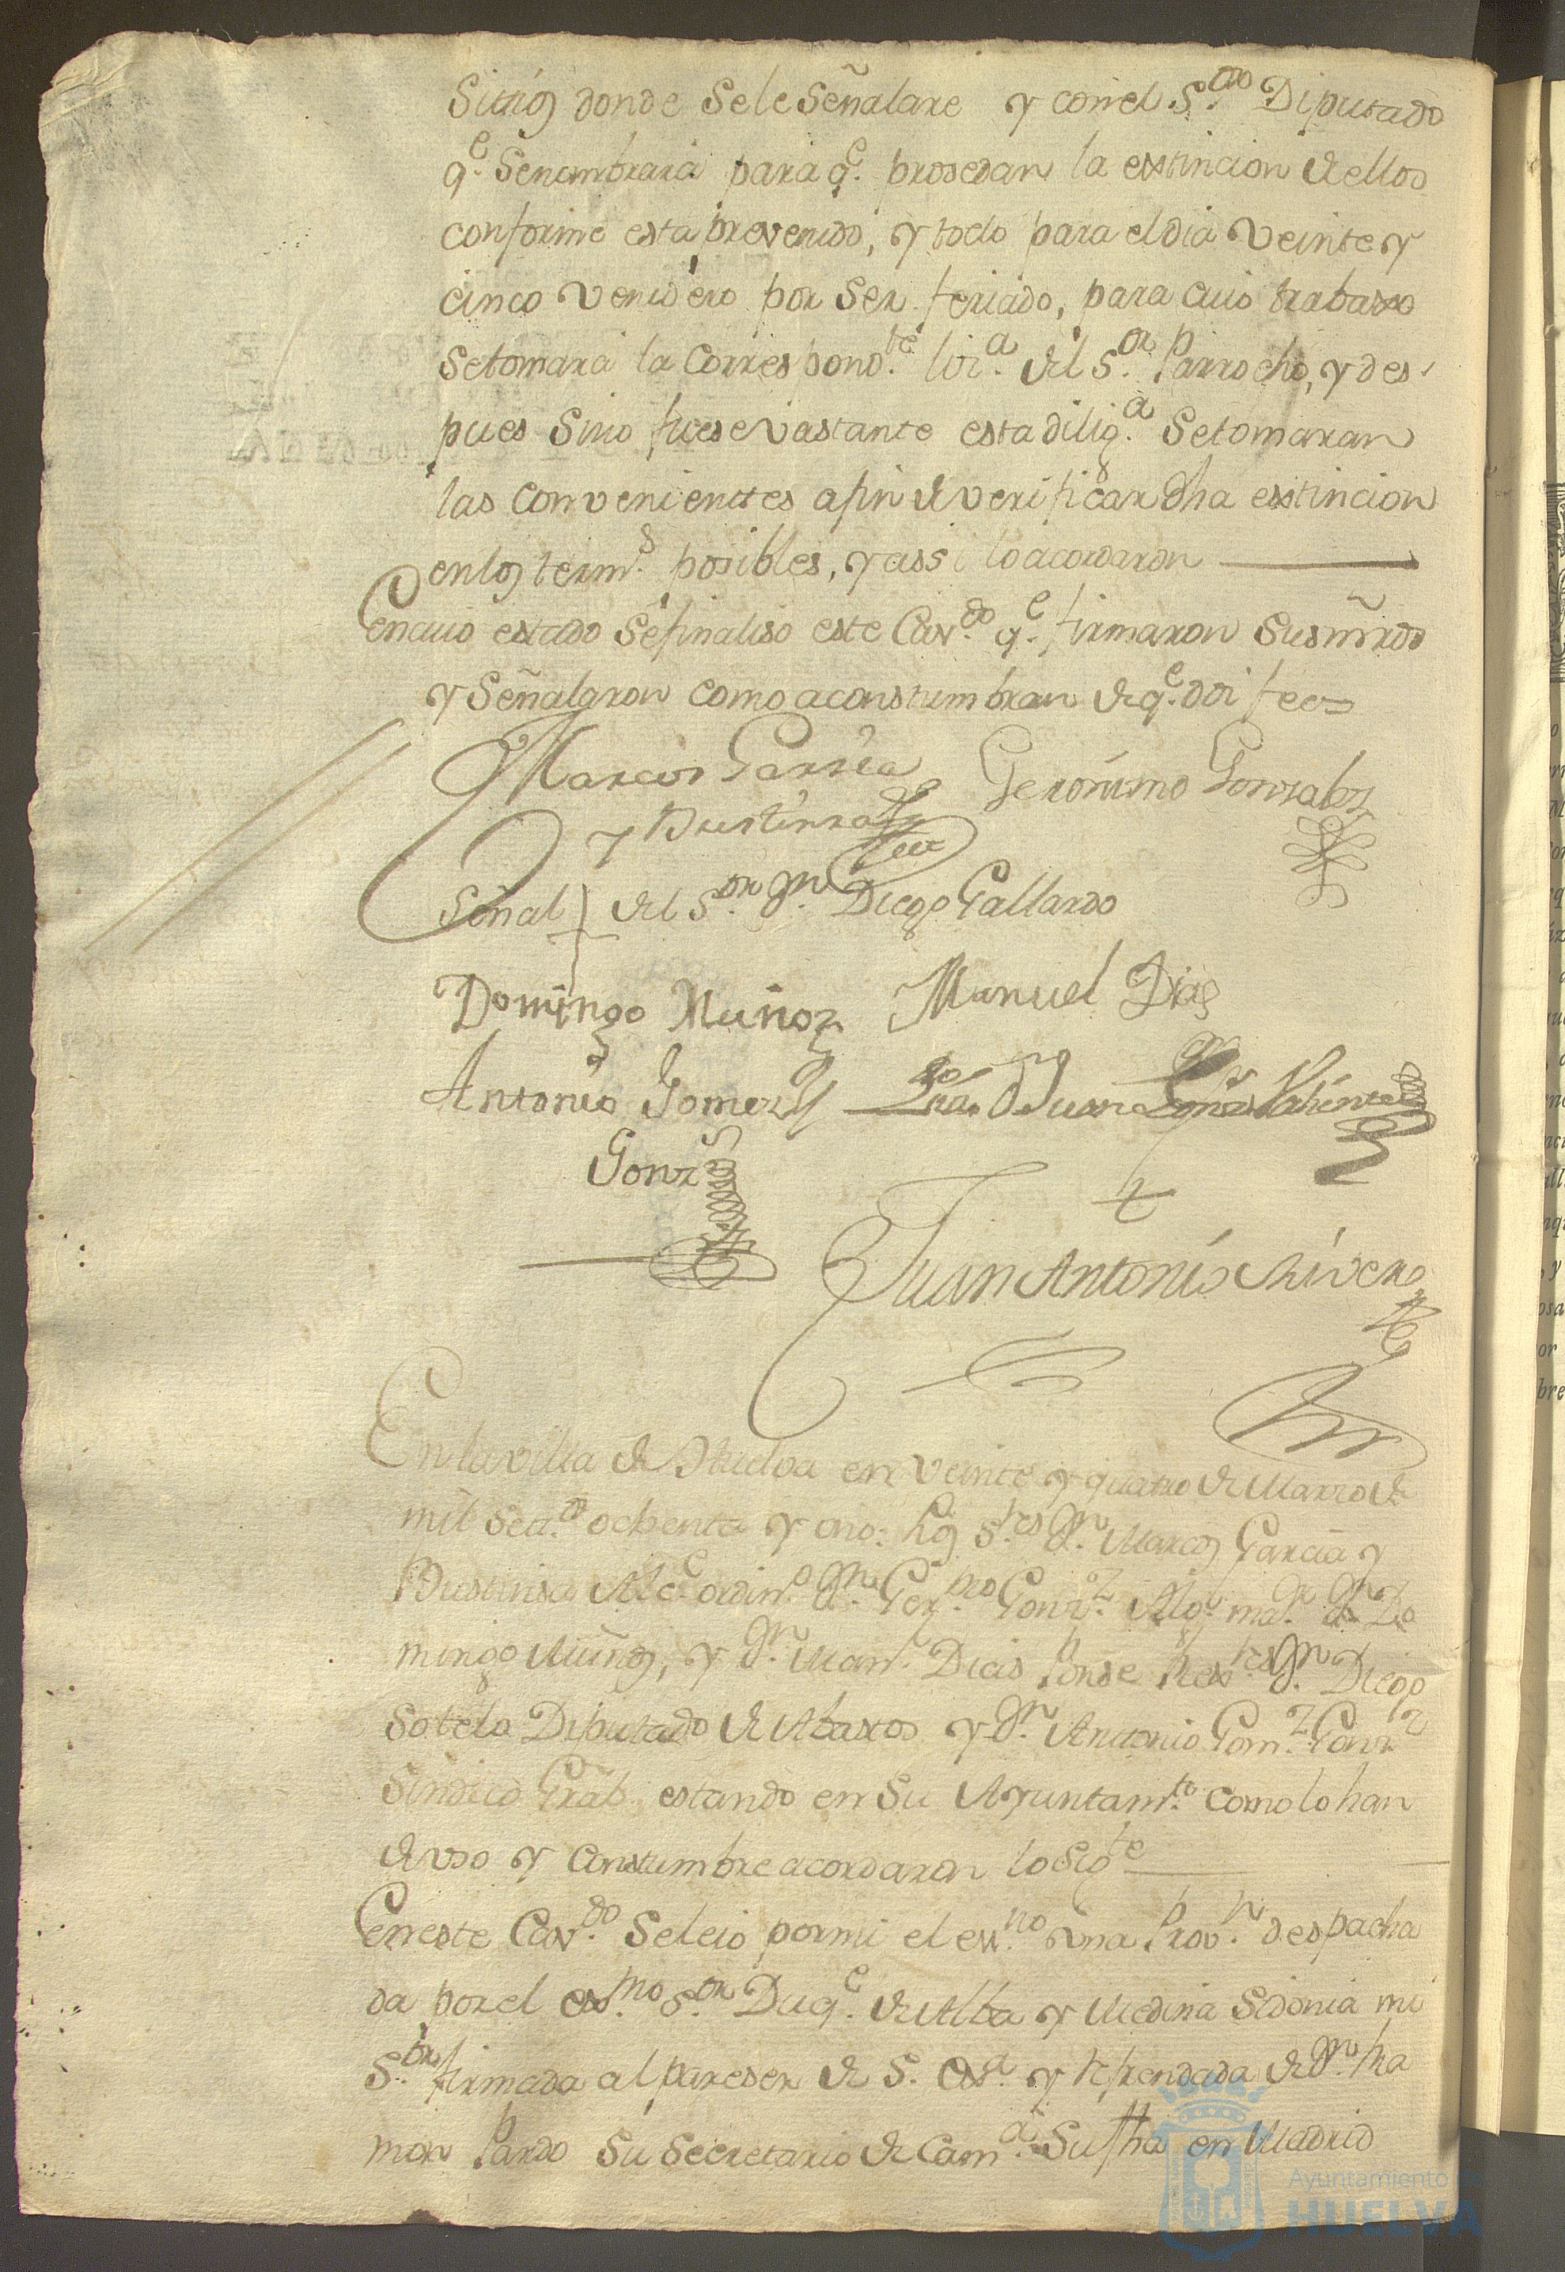 Sitios donde sele señalare y con el S.or Diputado
q.e senumbrara para q.e prosedan la extincion de ellos
conforme esta prevenido, y todo para el dia veinte y
cinco venidero por ser feriado, para cuio trabaxo
setomara la correspond.te liz.a del S.or Parrocho, y des-
pues sino fuese vastante esta dilig.a setomaran
las convenientes a fin de verificar dha extincion
enlos term.s posibles, y assi lo acordaron
En cuio estado sefinaliso este Cav.do q.e firmaron sus mrds
y señalaron como aconstumbran de q.e doi fee=
Marcos Garsia Geronimo Gonzalez
y Bustinza
Señal del S.or Dn Diego Gallardo
Domingo Muñoz Manuel Dias
Antonio Gomez Juan Valiente
Gonz
Juan Antonio Rivero
En la villa de Huelva en veinte y quatro de Marzo de
mil sett.os ochenta y uno: los S.res D.n Marcos Garcia y
Bustinsa Alc.e ordin.o D.n Ger.mo Gonz.z Alg.l ma.r D.n Do
mingo Muñoz, y D.n Man.l Dias Ponse Rex.res D.n Diego
Sotelo Diputado de Abastos y D.n Antonio Gom.z Gonz.z
Sindico Gral estando en su Ayuntam.to como lo han
de uso y constumbre acordaron lo sig.te
En este Cav.do seleio por mi el ess.no una Prov.n despacha
da por el ex.mo S.or Duq.e de Alba y Medina Sidonia mi
S.or firmada al pareser de S. Ex.a y refrendada de D.n Ra
mon Pardo su secretario de Cam.a su fha en Madrid
Ayuntamiento de
HUELVA